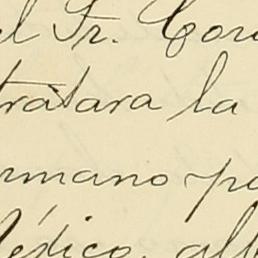 el Fr. Cor
tratara la
rmano po
Médico, all